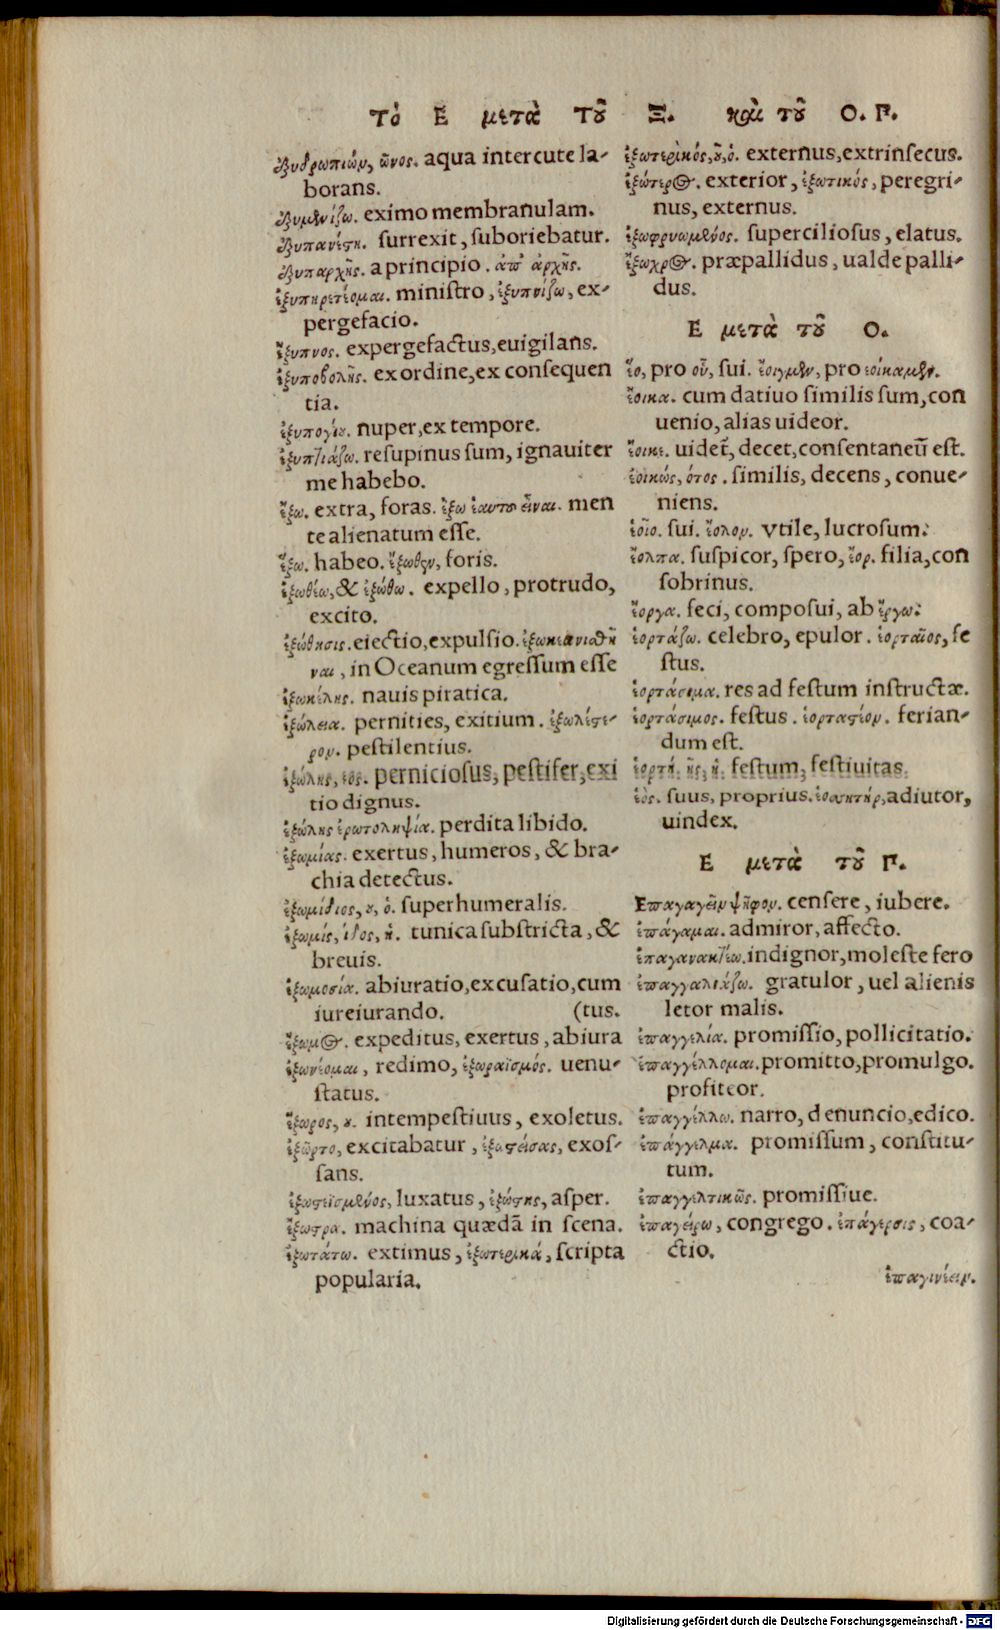 Τὸ Ε μετὰ τοῦ Ξ. καὶ τοῦ Ο. Γ.
ἐξυδρωπιῶν, ῶνος. aqua intercute la-
borans.
ἐξυμενίζω. eximo membranulam.
ἐξυπανέστη. surrexit, suboriebatur.
ἐξυπαρχῆς. a principio. ἀπ' ἀρχῆς.
ἐξυπηρετέομαι. ministro, ἐξυπνίζω, ex-
pergefacio.
ἔξυπνος. expergefactus, euigilans.
ἐξυποβολῆς. ex ordine, ex consequen
tia.
ἐξυπογύου. nuper, ex tempore.
ἐξυπτιάζω. resupinus sum, ignauiter
me habebo.
ἔξω. extra, foras. ἔξω ἑαυτοῦ εἶναι. men
te alienatum esse.
ἕξω. habeo. ἔξωθεν, foris.
ἐξωθέω, & ἐξώθω. expello, protrudo,
excito.
ἐξώθησις. eiectio, expulsio. ἐξωκεανισθῆ
ναι, in Oceanum egressum esse
ἐξωκέλης. nauis piratica.
ἐξώλεια. pernities, exitium. ἐξωλέστε-
ρον. pestilentius.
ἐξώλης, εος. perniciosus, pestifer, exi
tio dignus.
ἐξώλης ἐρωτοληψία. perdita libido.
ἐξωμίας. exertus, humeros, & bra-
chia detectus.
ἐξωμίδιος, ου, ὁ. superhumeralis.
ἐξωμίς, ίδος, ἡ. tunica substricta, &
breuis.
ἐξωμοσία. abiuratio, excusatio, cum
iureiurando. (tus.
ἔξωμος. expeditus, exertus, abiura
ἐξωνέομαι, redimo, ἐξωραϊσμός. uenu-
status.
ἔξωρος, ου. intempestiuus, exoletus.
ἐξῶρτο, excitabatur, ἐξωστείσας, exos-
sans.
ἐξωστεϊσμένος, luxatus, ἐξώστης, asper.
ἔξωστρα. machina quædã in scena.
ἐξωτάτω. extimus, ἐξωτερικά, scripta
popularia.
ἐξωτερικός, οῦ, ὁ. externus, extrinsecus.
ἐξώτερος. exterior, ἐξωτικός, peregri-
nus, externus.
ἐξωφρυωμένος. superciliosus, elatus.
ἔξωχρος. præpallidus, ualde palli-
dus.
Ε μετὰ τοῦ Ο.
ἕο, pro οὗ, sui. ἔοιγμεν, pro ἐοίκαμεν.
ἔοικα. cum datiuo similis sum, con
uenio, alias uideor.
ἔοικε. uidet̃, decet, consentaneũ est.
ἐοικώς, ότος. similis, decens, conue-
niens.
ἑοῖο. sui. ἔολον. vtile, lucrosum.
ἔολπα. suspicor, spero, ἔορ. filia, con
sobrinus.
ἔοργα. feci, composui, ab ἔργω.
ἑορτάζω. celebro, epulor. ἑορταῖος, fe
stus.
ἑορτάσιμα. res ad festum instructæ.
ἑορτάσιμος. festus. ἑορταστέον. ferian-
dum est.
ἑορτή. ῆς, ἡ. festum, festiuitas.
ἑός. suus, proprius. ἐοσσητήρ, adiutor,
uindex.
Ε μετὰ τοῦ Γ.
Επαγαγεῖν ψῆφον. censere, iubere.
ἐπάγαμαι. admiror, affecto.
ἐπαγανακτέω. indignor, moleste fero
ἐπαγγαλιάζω. gratulor, uel alienis
letor malis.
ἐπαγγελία. promissio, pollicitatio.
ἐπαγγέλλομαι. promitto, promulgo.
profiteor.
ἐπαγγέλλω. narro, denuncio, edico.
ἐπάγγελμα. promissum, constitu-
tum.
ἐπαγγελτικῶς. promissiue.
ἐπαγείρω, congrego. ἐπάγερσις, coa-
ctio.
ἐπαγινέειν.
Digitalisierung gefördert durch die Deutsche Forschungsgemeinschaft - DFG